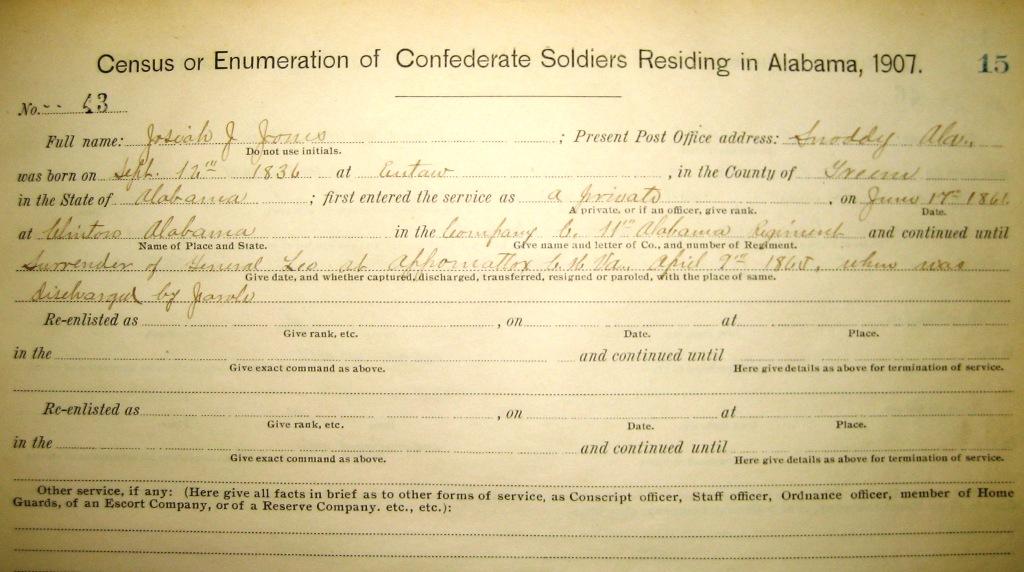 Census or Enumeration of Confederate Soldiers Residing in Alabama, 1907. 15
No. 53
Full name: Josiah J Jones ; Present Post Office address: Snoddy Ala.
Do not use initials.
was born on Sept. 12th 1836 at Eutaw , in the County of Green
in the State of Alabama ; first entered the service as a private , on June 17th 1861
A private, or if an officer, give rank. Date.
at Clinton Alabama in the Company C. 11th Alabama Regiment and continued until
Name of Place and State. Give name and letter of Co., and number of Regiment.
Surrender of General Lee at Appomattox C. H. Va. April 9th 1865, when was
Give date, and whether captured, discharged, transferred, resigned or paroled, with the place of same.
discharged by Parole
Re-enlisted as , on at
Give rank, etc. Date. Place.
in the and continued until
Give exact command as above. Here give details as above for termination of service.
Re-enlisted as , on at
Give rank, etc. Date. Place.
in the and continued until
Give exact command as above. Here give details as above for termination of service.
Other service, if any: (Here give all facts in brief as to other forms of service, as Conscript officer, Staff officer, Ordnance officer, member of Home
Guards, of an Escort Company, or of a Reserve Company. etc., etc.):